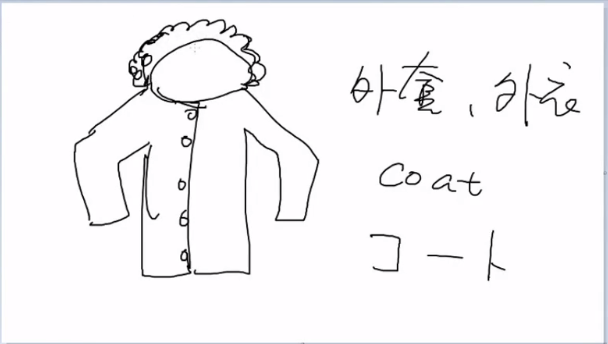 外套、外衣
coat
コート